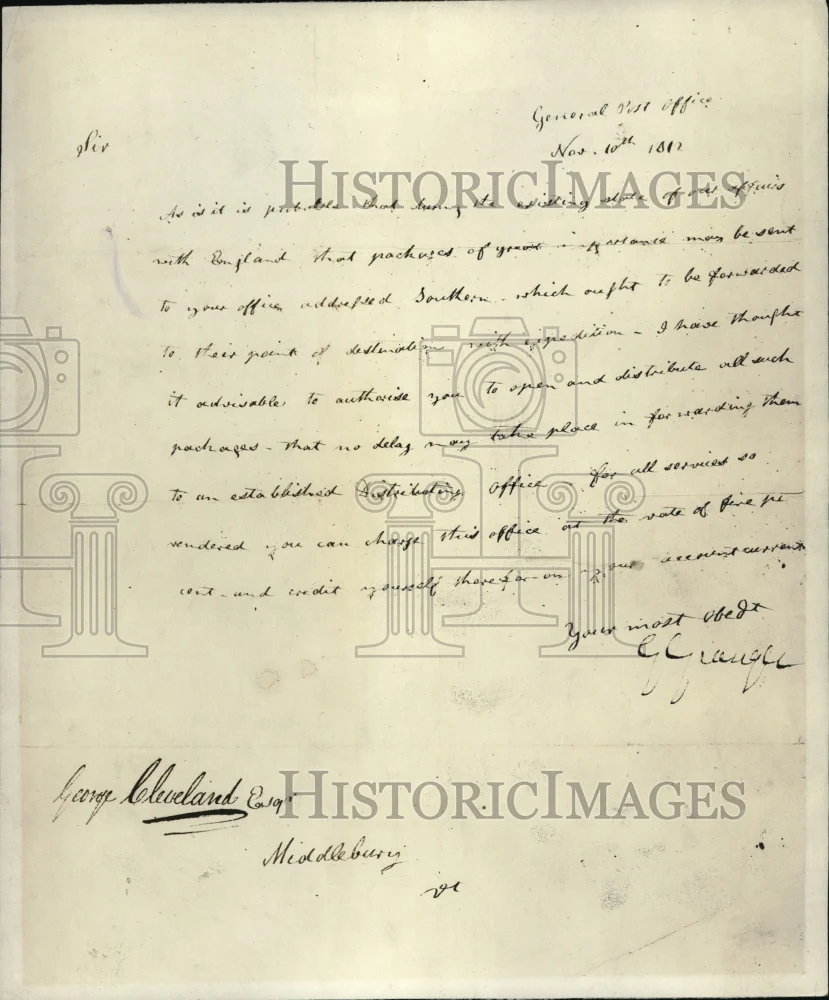 General Post Office
Nov. 10th 1812
Sir
HISTORICIMAGES
As it is probable that during the existing state of our affairs
with England that packages of great importance may be sent
to your office addressed Southern - which ought to be forwarded
to their point of destination with expedition - I have thought
it advisable to authorise you to open and distribute all such
packages - that no delay may take place in forwarding them
to an established Distributing office - for all services so
rendered you can charge this office at the rate of five pr
cent - and credit yourself therefor on your account current
Your most obedt
G Granger
George Cleveland Esqr
HISTORICIMAGES
Middlebury
Vt